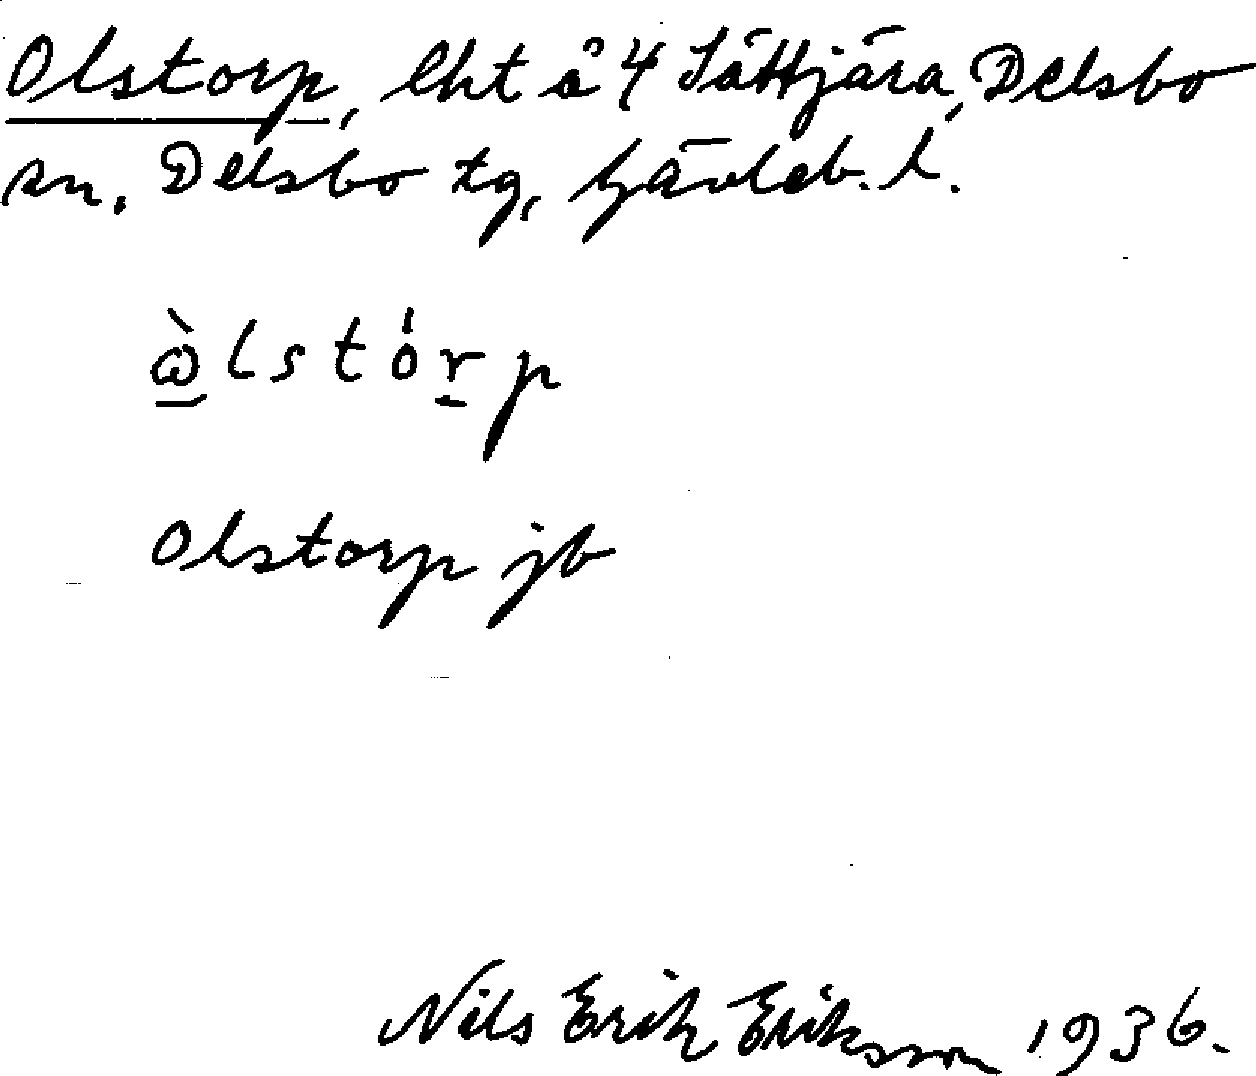 Olstorp, lht å 4 Sättjära, Delsbo
sn. Delsbo tg, Gävleb. l.
ὼlstórp
Olstorp jb
Nils Erik Eriksson 1936.